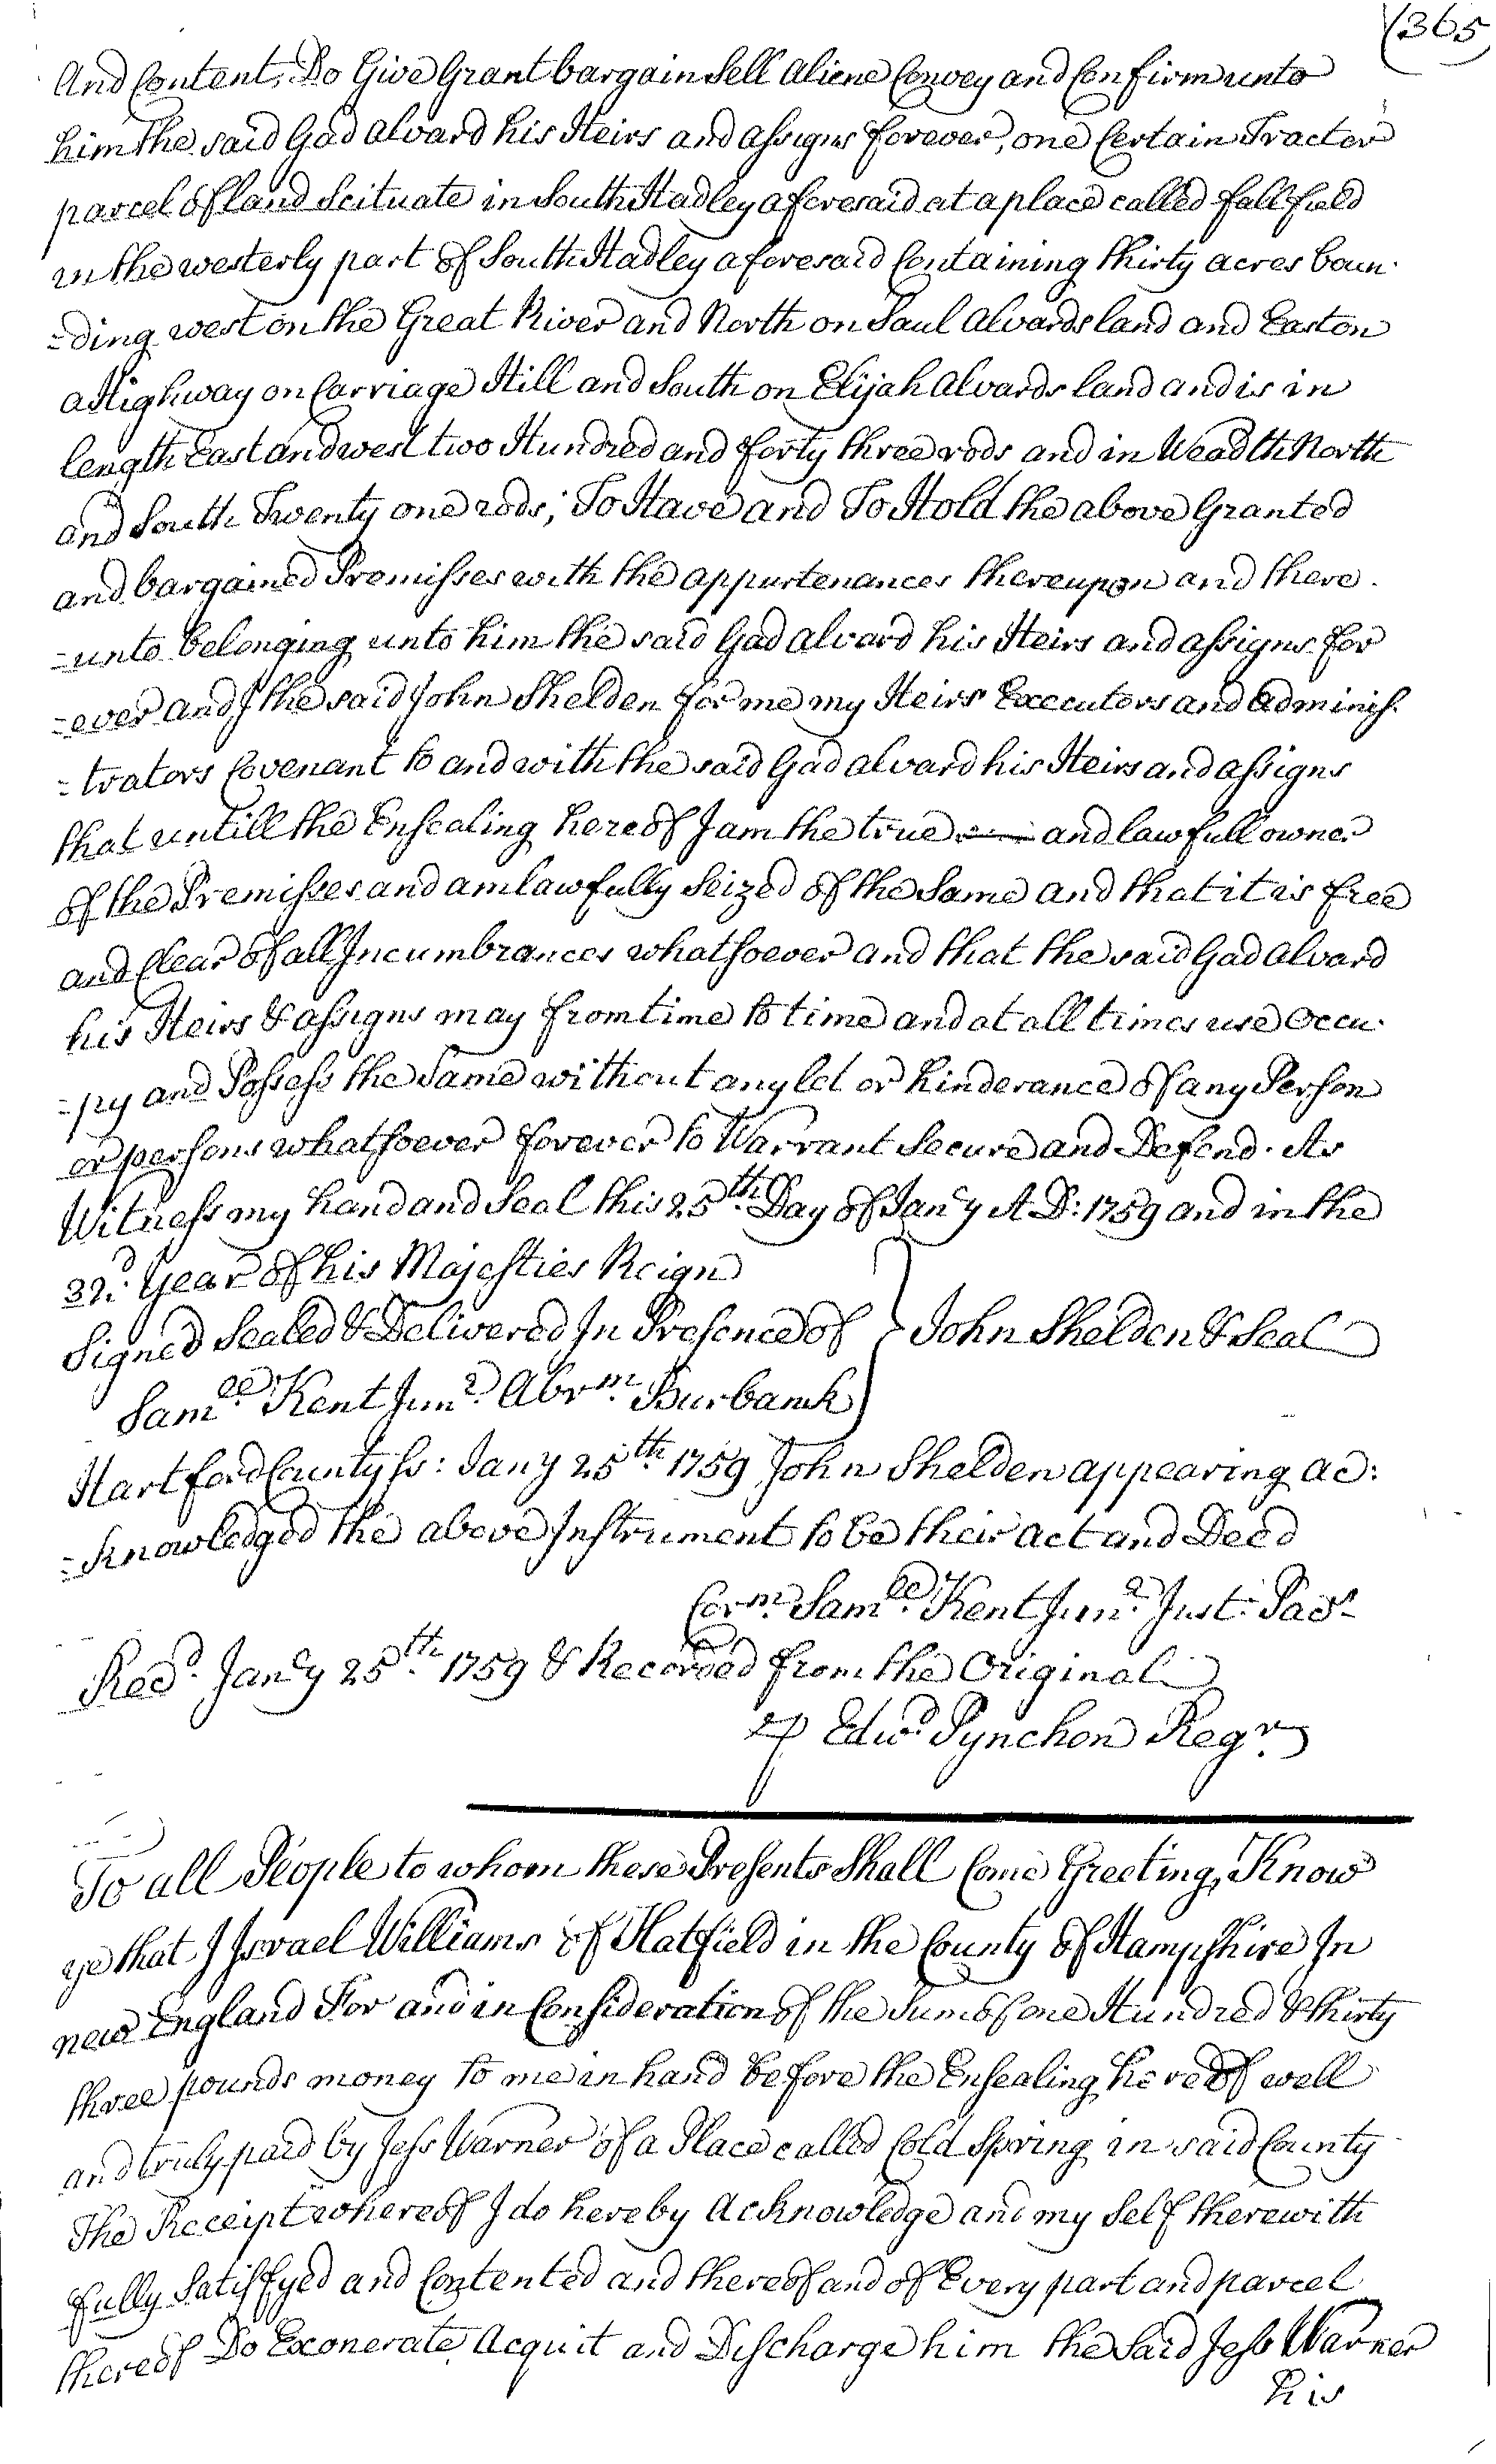 (365
And Content, Do Give Grant bargain Sell aliene Convey and Confirm unto
him the said Gad alvard his Heirs and assigns forever, one Certain Tract or
parcel of land Scituate in South Hadley aforesaid at a place called fallfield
in the westerly part of South Hadley aforesaid Containing thirty acres boun-
=ding west on the Great River and North on Saul Alvards land and East on
a Highway on Carriage Hill and South on Elijah Alvards land and is in
length East and west two Hundred and forty three rods and in Weadth North
and South Twenty one rods; To Have and To Hold the above Granted
and bargained Premisses with the appurtenances thereupon and there-
=unto belonging unto him the said Gad alvard his Heirs and assigns for
=ever and I the said John Shelden for me my Heirs Executors and Adminis-
=trators Covenant to and with the said Gad alvard his Heirs and assigns
that untill the Ensealing hereof I am the true and lawfull owner
of the Premisses and am lawfully Seized of the Same and that it is free
and Clear of all Incumbrances whatsoever and that the said Gad Alvard
his Heirs & assigns may from time to time and at all times use Occu-
=py and Possess the Same without any let or hinderance of any Person
or persons whatsoever forever to Warrant Secure and Defend. As
Witness my hand and Seal this 25th. Day of Jany A D: 1759 and in the
32d. Year of his Majesties Reign
Signed Sealed & Delivered In Presence of } John Shelden & Seal
Samll. Kent Junr. Abrm. Burbank
Hartford County ss: Jany 25th. 1759 John Shelden appearing ac:
=knowledged the above Instrument to be their act and Deed
Corm. Samll. Kent Junr. Just: Pacs
Recd. Jany 25th. 1759 & Recorded from the Original
P Edwd. Pynchon Regr.
To all People to whom these Presents Shall Come Greeting, Know
ye that I Israel Williams of Hatfield in the County of Hampshire In
new England For and in Consideration of the Sum of one Hundred & thirty
three pounds money to me in hand before the Ensealing hereof well
and truly paid by Jess Warner of a Place called Cold Spring in said County
The Receipt whereof I do hereby Acknowledge and my Self therewith
fully Satisfyed and Contented and thereof and of Every part and parcel
thereof Do Exonerate Acquit and Discharge him the Said Jess Warner
his